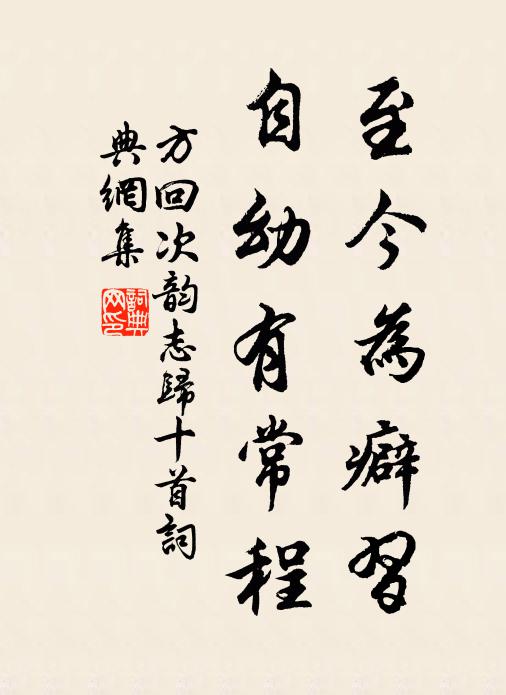 至今為癖習
自幼有常程
方回次韵志歸十首詞
典網集
詞典网印